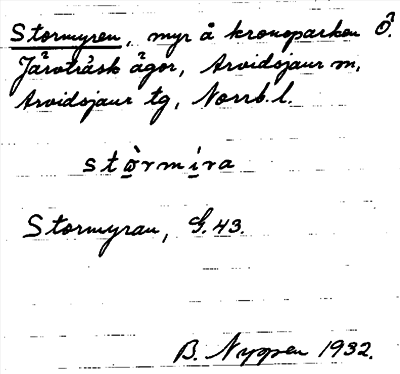 Stormyren, myr å kronoparken Ö.
Järvträsk ägor, Arvidsjaur m,
Arvidsjaur tg, Norrb. l.
stòrmíra
Stormyran, G. 43.
B. Nyppen 1932.